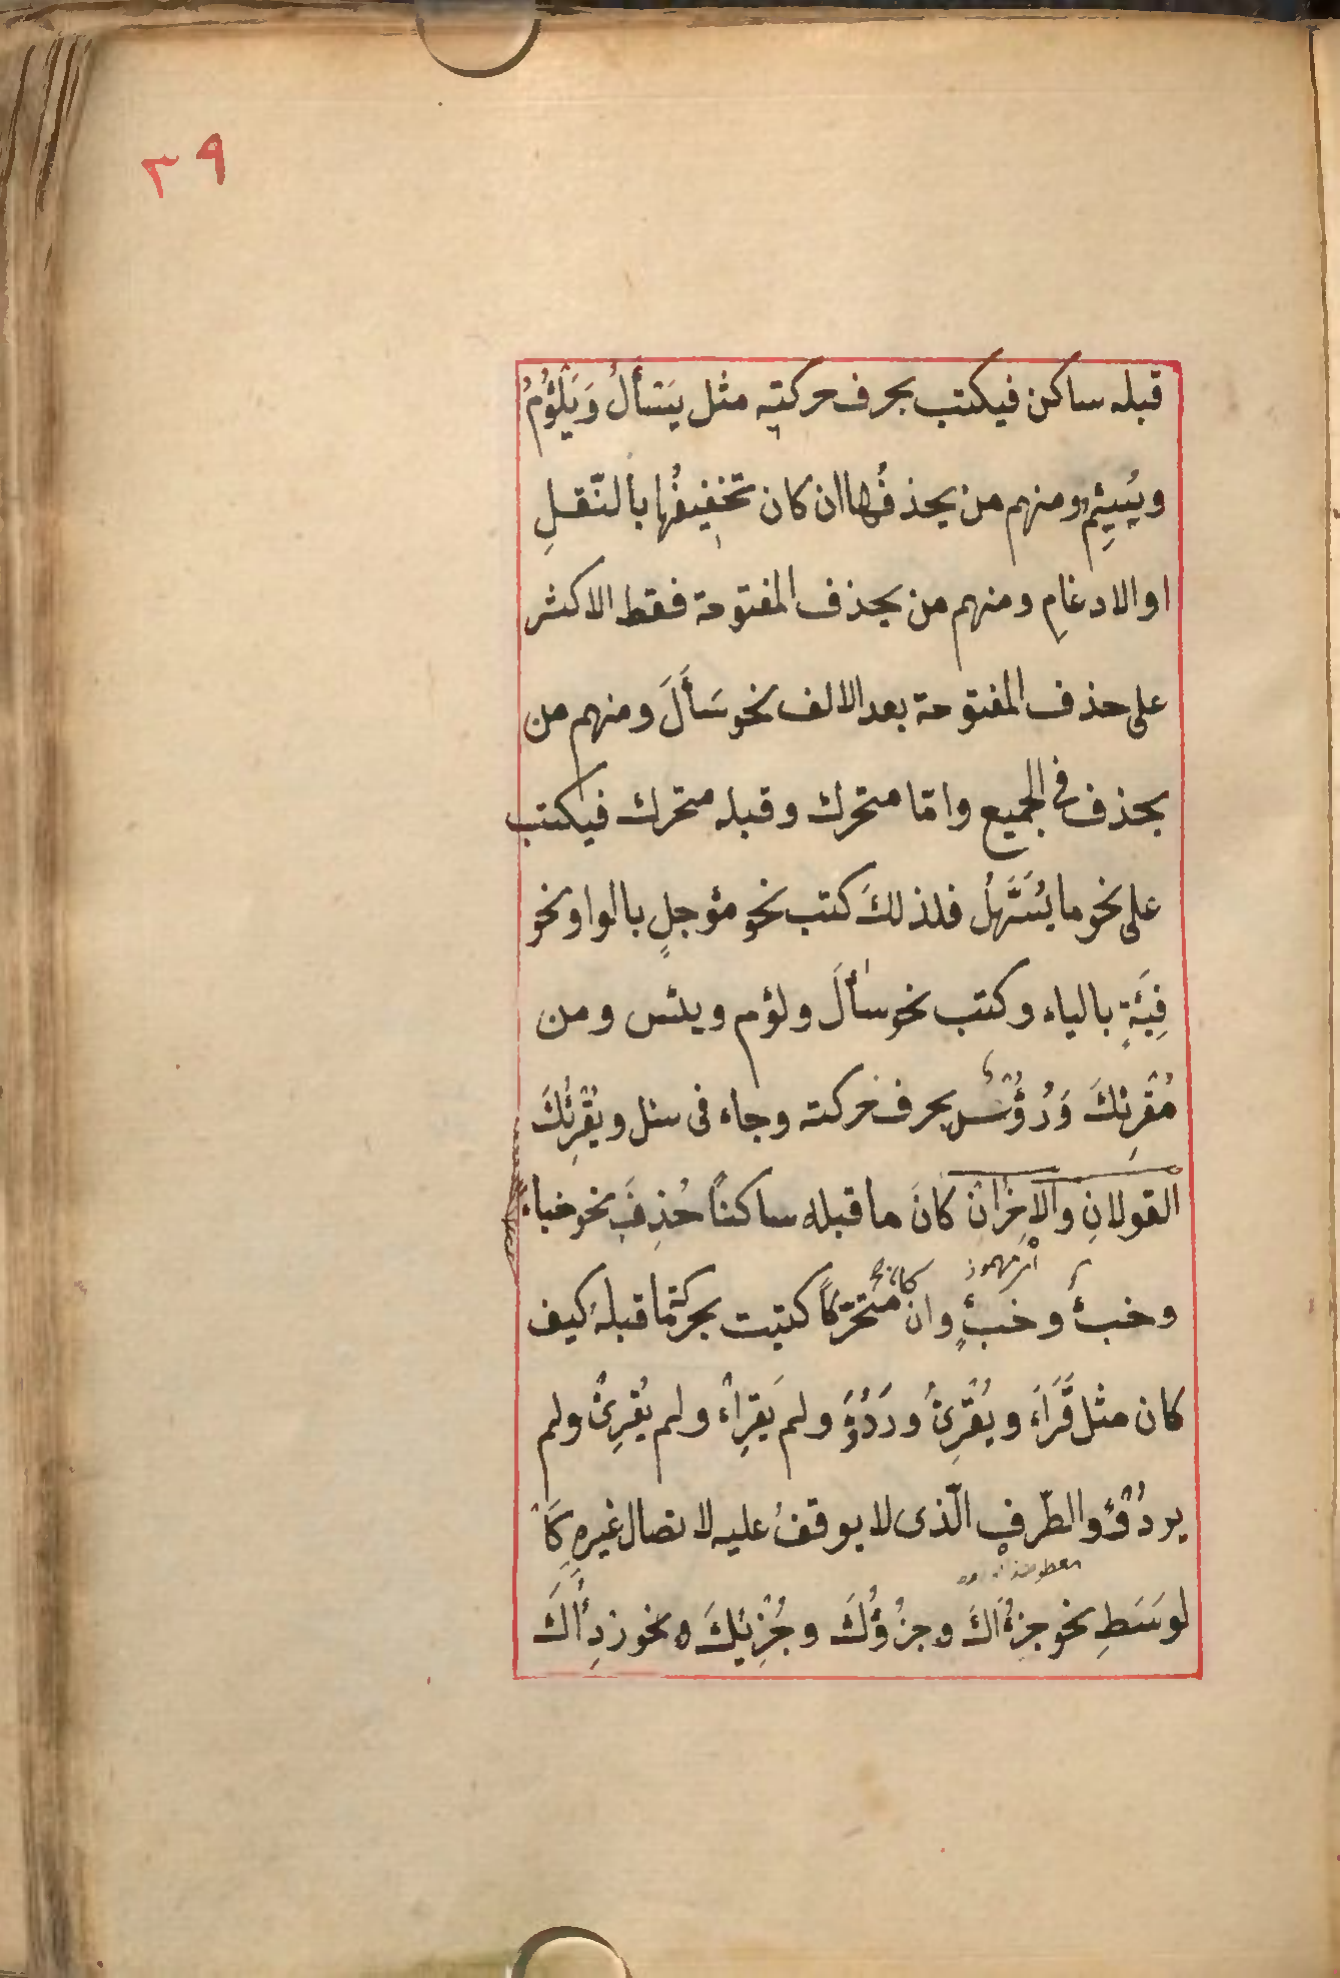 ٣٩
قبله ساكن فيكتب بحرف حركته مثل يَسْألُ وَيَلْؤُمُ
ويُيئِم ومنهم من يحذفُها ان كان تخفيفُها بالنّقلِ
او الادغامِ ومنهم من يحذف المفتوحة فقط الاكثر
على حذف المفتوحة بعد الالف نحو سَأَلَ ومنهم من
يحذف فى الجميع وامّا متحرك وقبله متحرك فيكتب
على نحو ما يُسَهَّلُ فلذلكَ كتب نحو مؤجلٍ بالواو ونحو
فِئَةٍ بالياء وكتب نحو سألَ ولؤم ويئس ومن
مُقْرِئكَ وَرُؤُسٌ بحرف حركته وجاء فى سئل ويُقْرِئُكَ
القولانِ والآخِرُ انْ كانَ ما قبله ساكنًا حُذِفَ نحو خباء
وخبءٌ وخبءٍ وان كان متحرّكًا كتبت بحركة ما قبلهُ كيف
كان مثل قَرَاءَ ويُقْرِئُ ورَدُؤَ ولم يَقراءْ ولم يُقْرِئْ ولم
يردُؤْ والطّرف الّذى لا يوقفُ عليه لاتصال غيرِهِ كَا
لوَسَطِ نحو جزءُاَكَ وجزؤُكَ وجُزْئِكَ ونحو زدِأُكَ